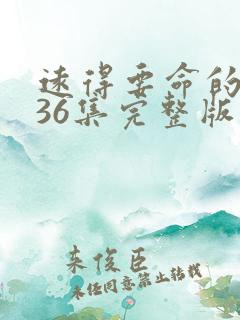 速得要命的
36集完整版
来俊臣
未经同意禁止转载